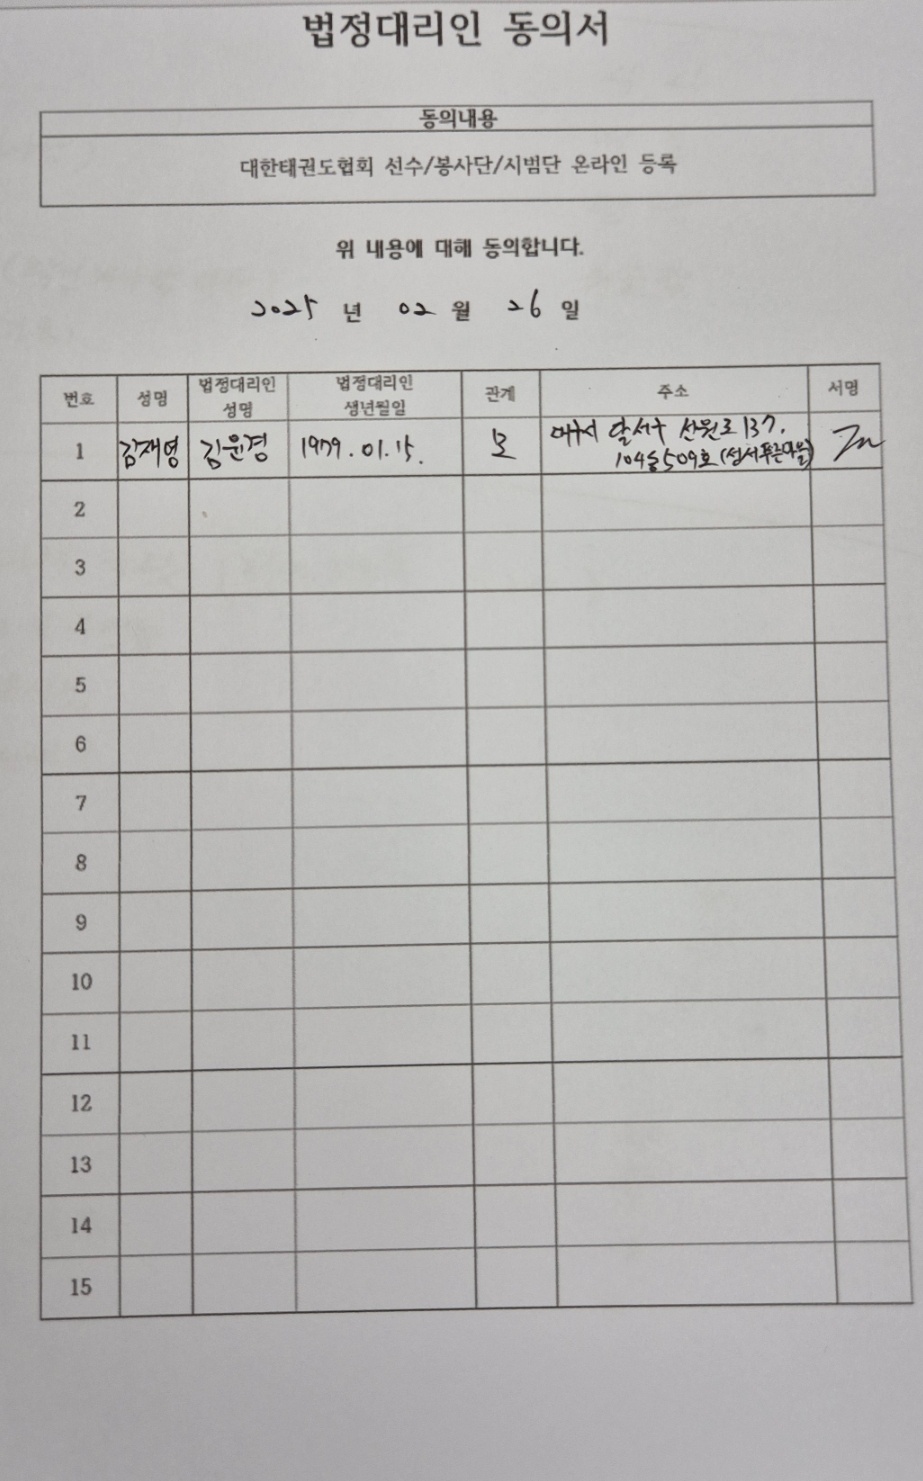 법정대리인 동의서
동의내용
대한태권도협회 선수/봉사단/시범단 온라인 등록
위 내용에 대해 동의합니다.
2025 년 02 월 26 일
번호 성명 법정대리인 성명 법정대리인 생년월일 관계 주소 서명
1 김재영 김윤경 1979.01.15. 모 대구시 달서구 선원로 137,
104동 509호 (성서푸른마을)
2
3
4
5
6
7
8
9
10
11
12
13
14
15